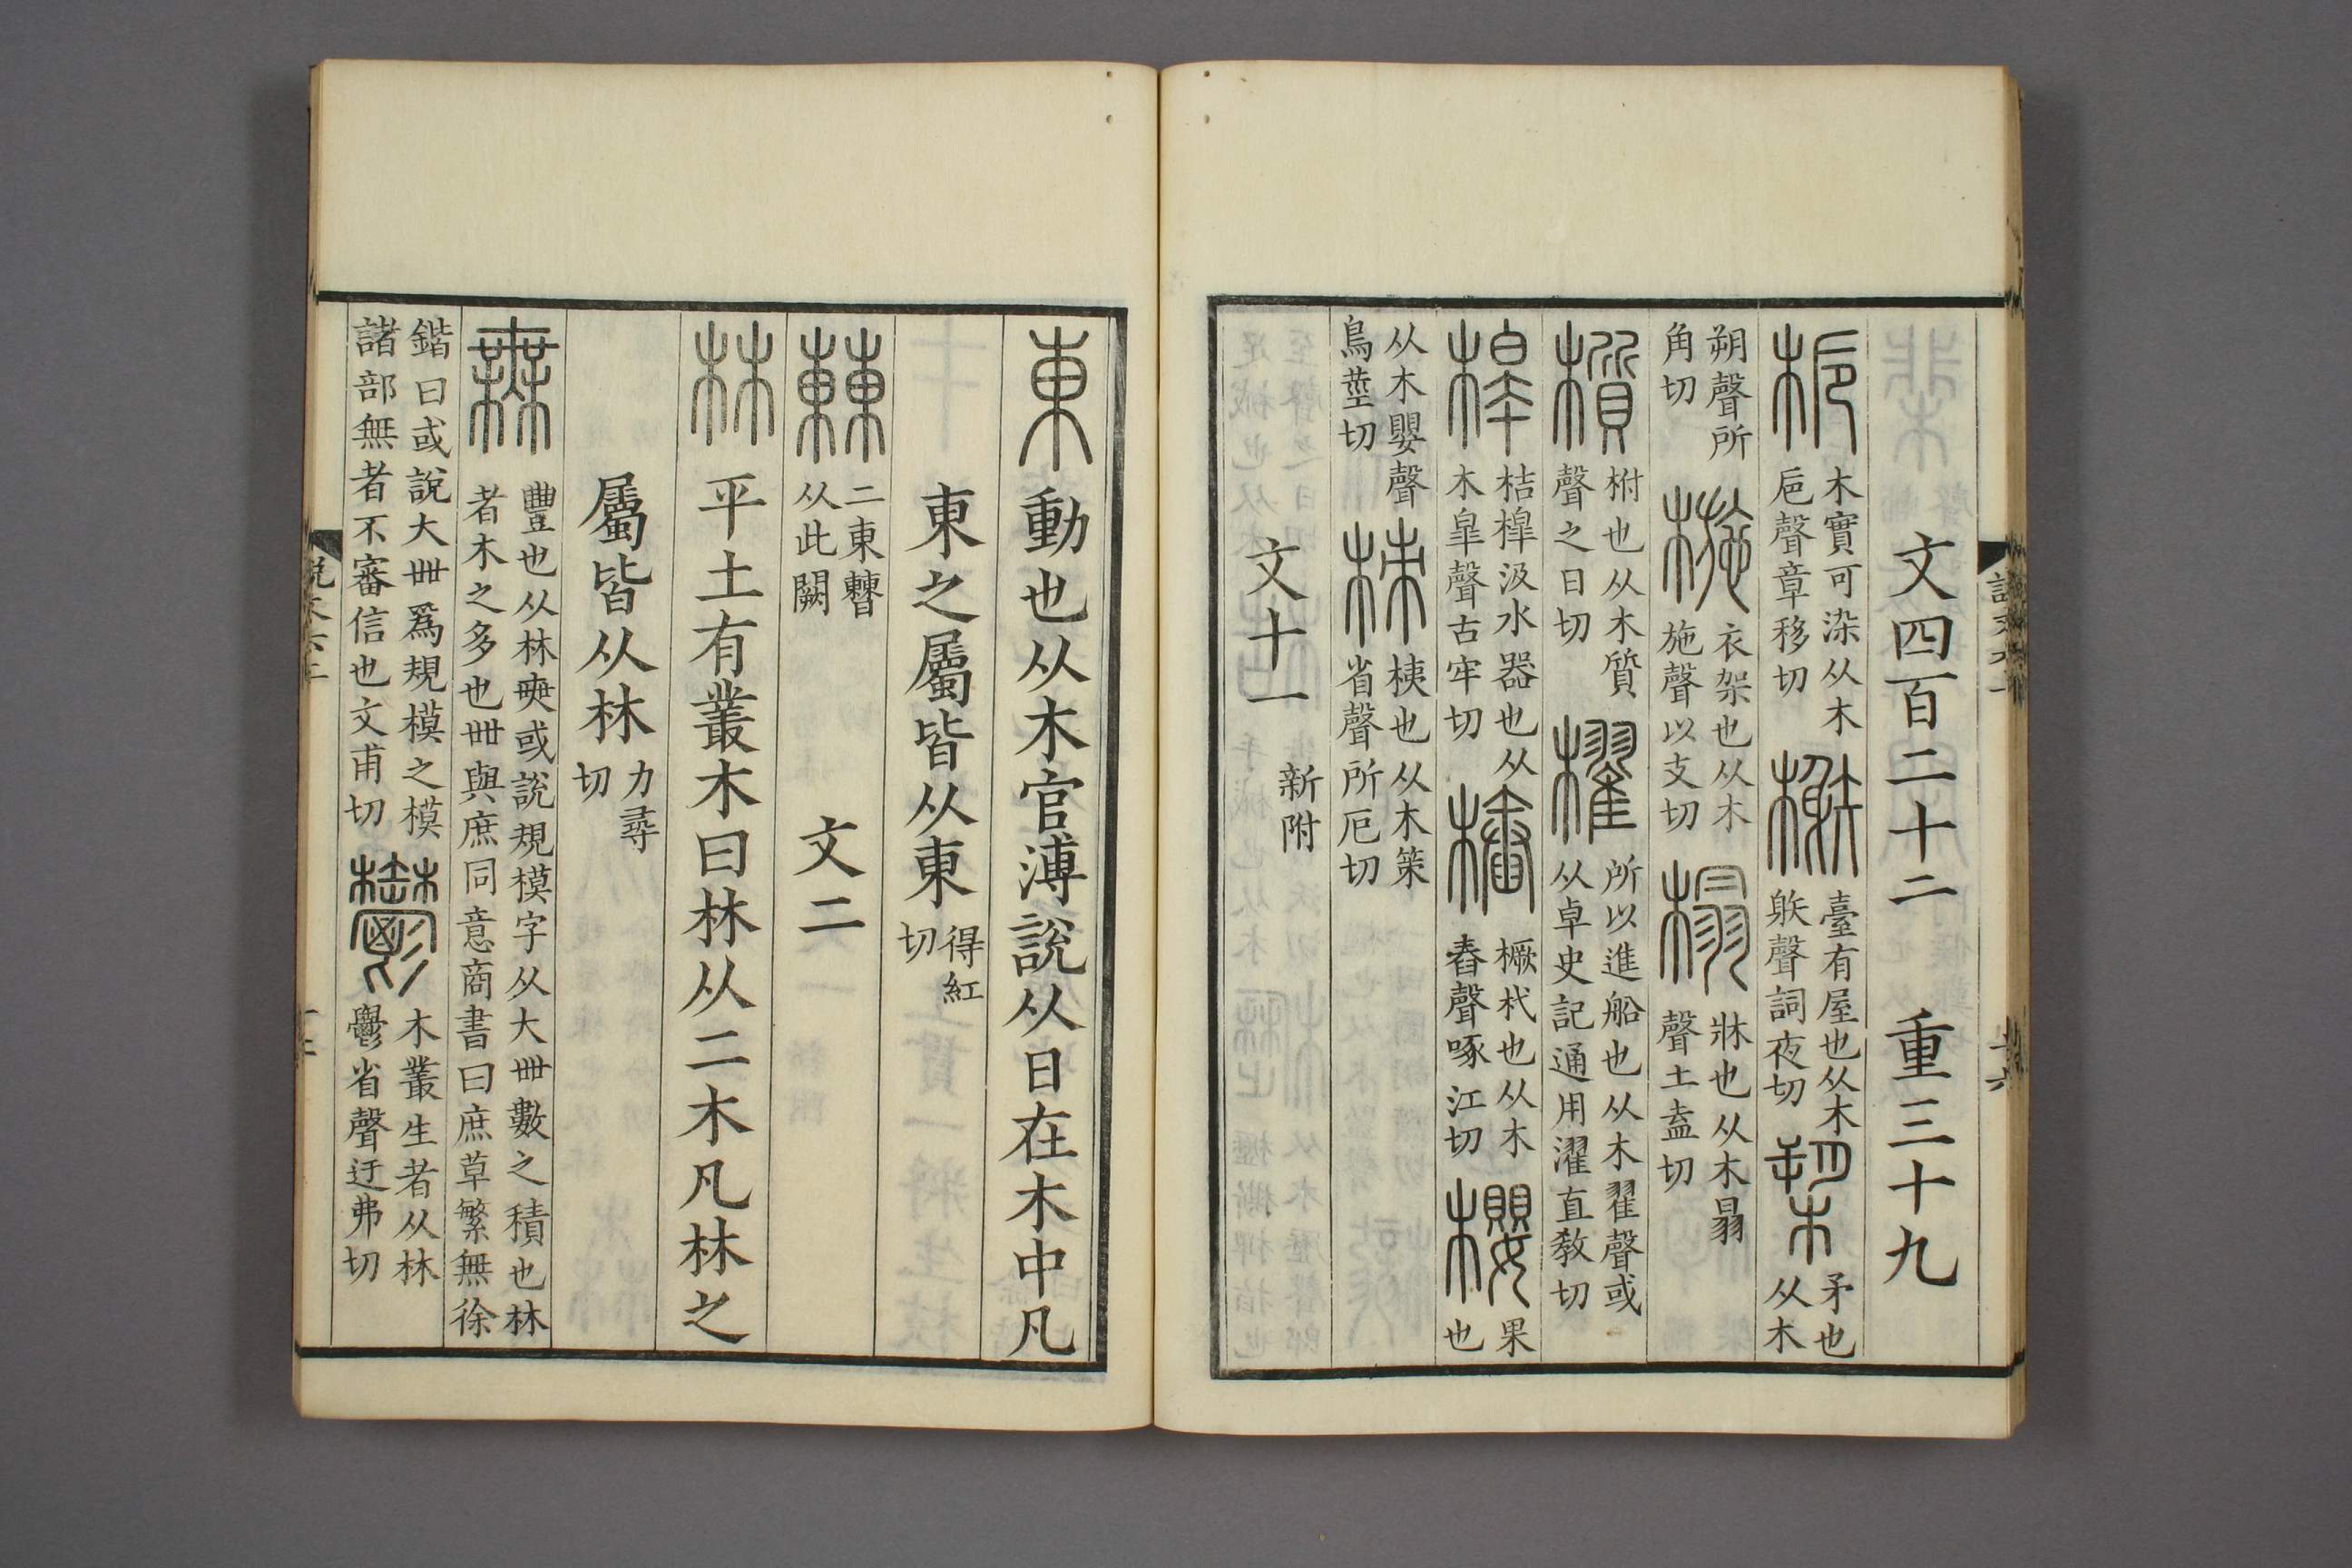 文四百二十二　重三十九
梔 木實可染从木巵聲章移切 榭 臺有屋也从木躲聲詞夜切 槊 矛也从木
朔聲所角切 椸 衣架也从木施聲以支切 榻 牀也从木㬱聲土盍切
櫍 柎也从木質聲之日切 櫂 所以進船也从木翟聲或从卓史記通用濯直教切
槹 桔槹汲水器也从木臯聲古牢切 樁 橛杙也从木舂聲啄江切 櫻 果也
从木嬰聲烏莖切 梀 桋也从木策省聲所厄切
文十一 新附
東 動也从木官溥說从日在木中凡
東之屬皆从東 得紅切
𣡌 二東𣍘从此闕　文二
林 平土有叢木曰林从二木凡林之
屬皆从林 力尋切
𣞤 豐也从林奭或說規模字从大𠦜數之積也林者木之多也𠦜與庶同意商書曰庶草繁無徐
鍇曰或說大𠦜爲規模之模諸部無者不審信也文甫切 鬱 木叢生者从林鬱省聲迂弗切